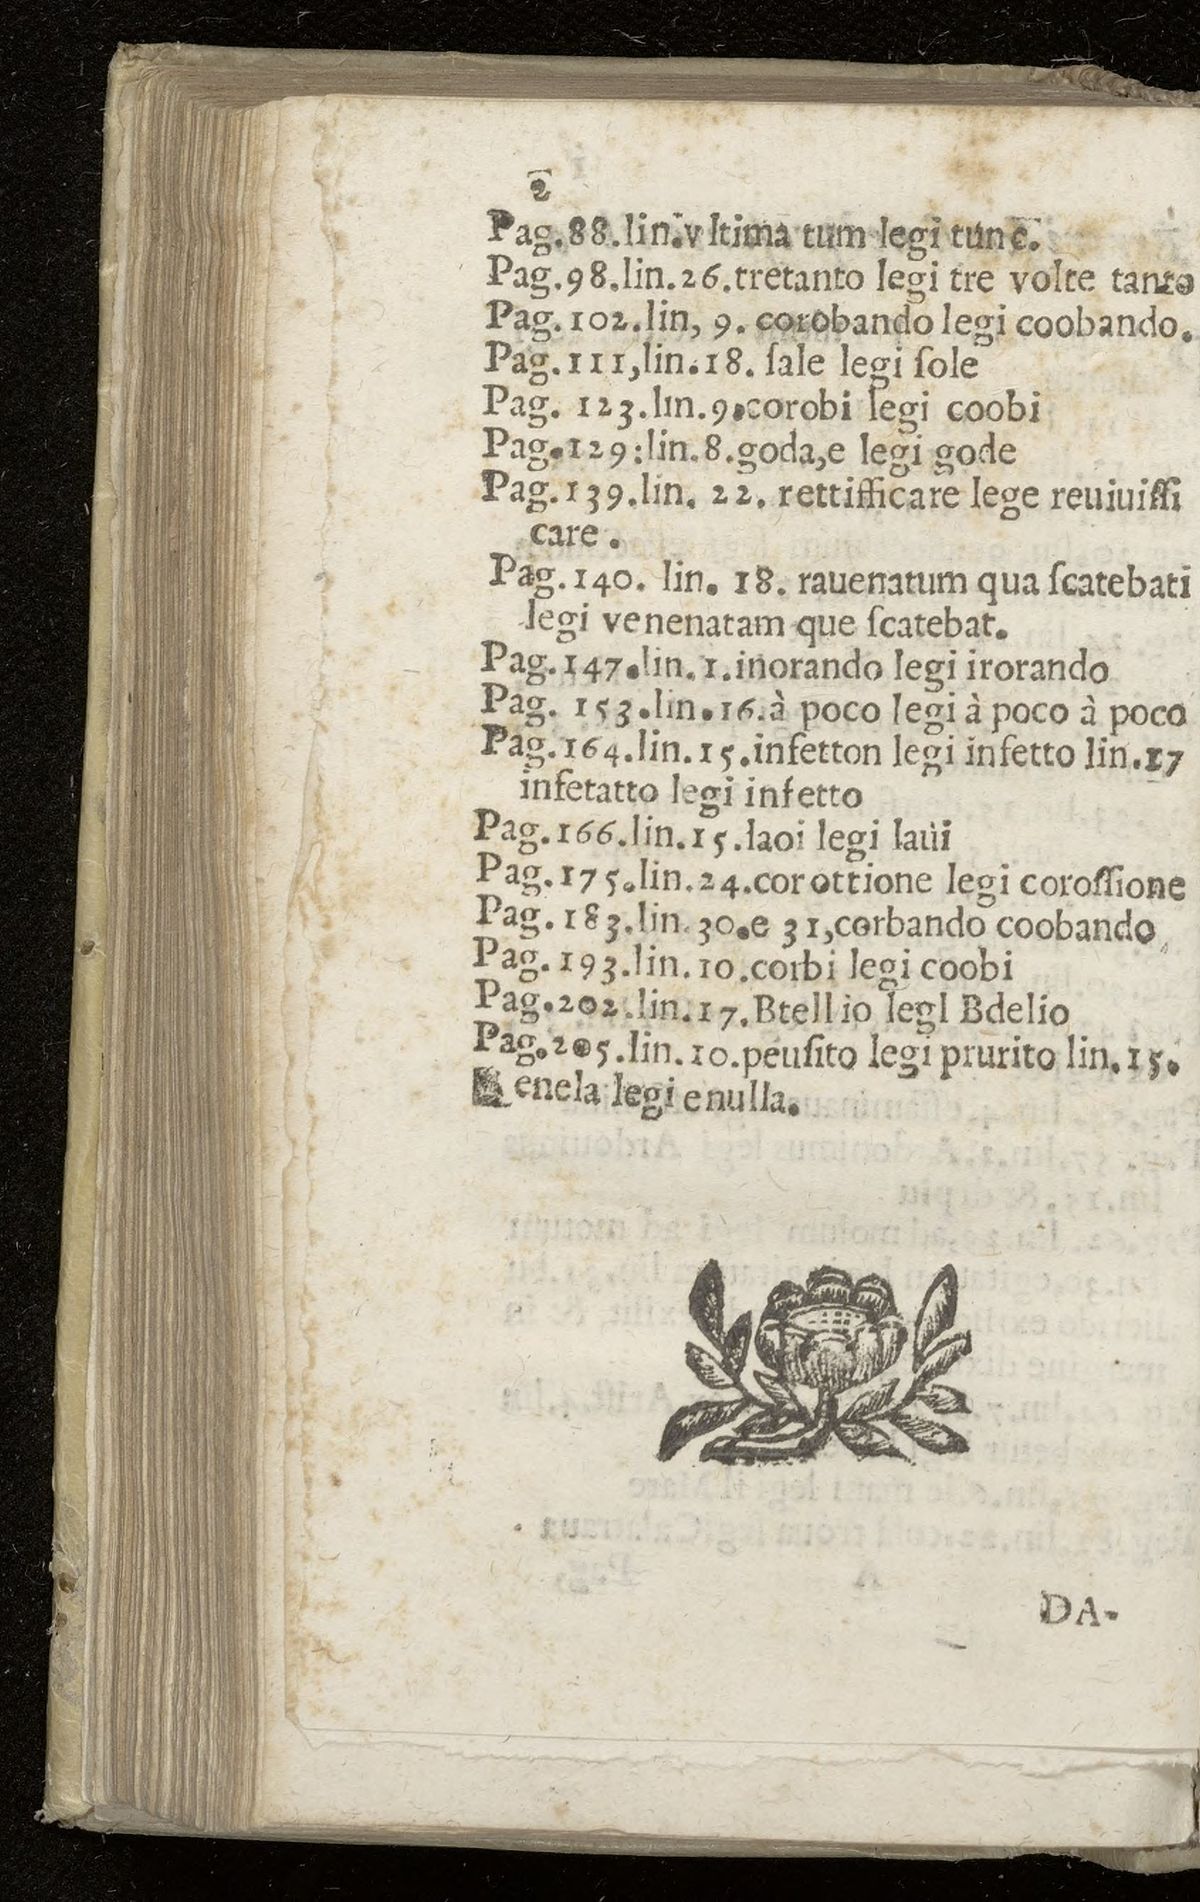 2
Pag.88.lin.vltima tum legi tunc.
Pag.98.lin.26.tretanto legi tre volte tanto
Pag.102.lin, 9. corobando legi coobando.
Pag.111,lin.18. ſale legi ſole
Pag. 123.lin.9.corobi legi coobi
Pag.129:lin.8.goda,e legi gode
Pag.139.lin. 22. rettifficare lege reuiuiffi
care .
Pag.140. lin. 18. rauenatum qua ſcatebati
legi venenatam que ſcatebat.
Pag.147.lin.1.inorando legi irorando
Pag. 153.lin.16.à poco legi à poco à poco
Pag.164.lin.15.infetton legi infetto lin.17
infetatto legi infetto
Pag.166.lin.15.laoi legi laui
Pag.175.lin.24.corottione legi coroſſione
Pag.183.lin.30.e 31,corbando coobando
Pag.193.lin.10.corbi legi coobi
Pag.202.lin.17.Btellio legl Bdelio
Pag.205.lin.10.peuſito legi prurito lin.15.
enela legi enulla.
DA-